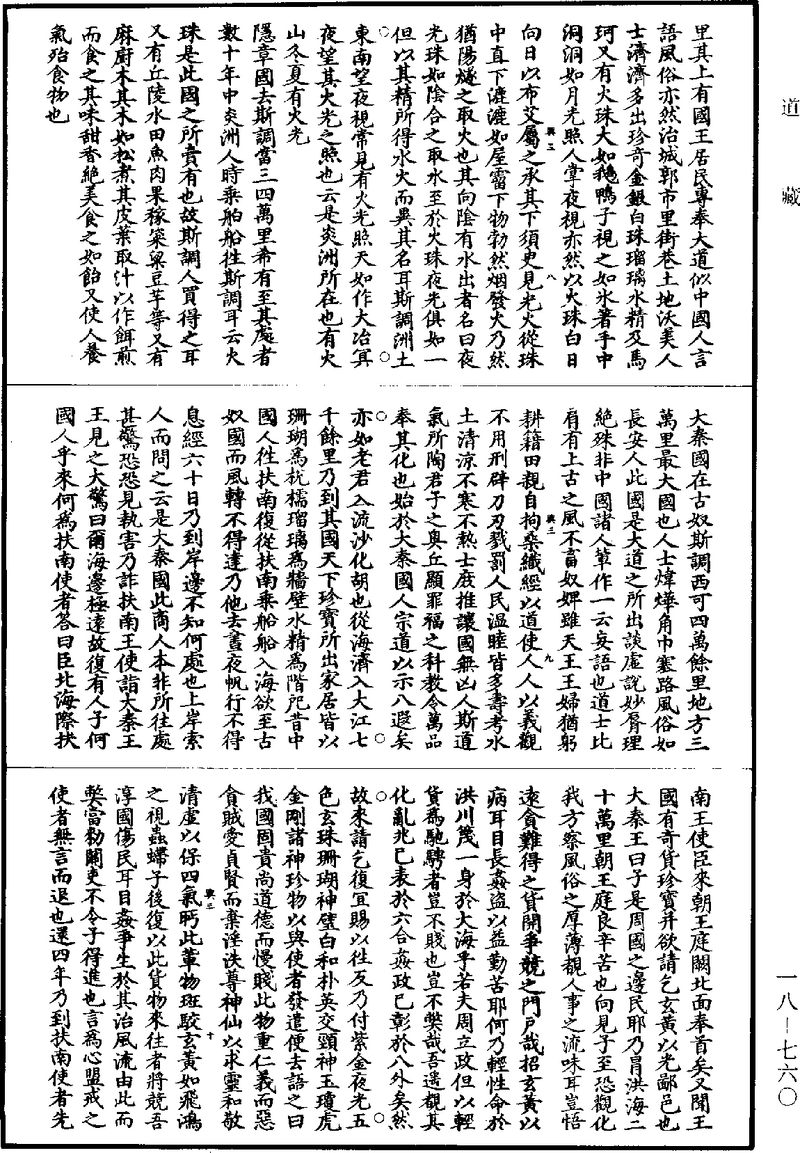 道藏
里其上有國王居民專奉大道似中國人言
語風俗亦然治城郭市里街巷土地沃美人
士濟濟多出珍奇金銀白珠瑠璃水精及馬
珂又有火珠大如鵝鴨子視之如氷著手中
洞洞如月光照人掌夜視亦然以火珠白日
向日以布艾屬之承其下須臾見光火從珠
中直下漉漉如屋霤下物勃然烟發火乃然
猶陽燧之取火也其向陰有水出者名曰夜
光珠如陰合之取水至於火珠夜光俱如一
但以其精所得水火而異其名耳斯調洲土
東南望夜視常見有火光照天如作大冶冥
夜望其火光之照也云是炎洲所在也有火
山冬夏有火光
隱章國去斯調當三四萬里希有至其處者
數十年中炎洲人時乘舶船徃斯調耳云火
珠是此國之所賣有也故斯調人買得之耳
又有丘陵水田魚肉果稼粢粱豆芋等又有
麻廚木其木如松煮其皮葉取汁以作餌煎
而食之其味甜香絶美食之如飴又使人養
氣殆食物也
興三
八
大秦國在古奴斯調西可四萬餘里地方三
萬里最大國也人士煒燁角巾塞路風俗如
長安人此國是大道之所出談虛說妙脣理
絶殊非中國諸人軰作一云妄語也道士比
肩有上古之風不畜奴婢雖天王王婦猶躬
耕籍田親自拘桑織經以道使人人以義觀
不用刑辟刀刃戮罰人民温睦皆多壽考水
土清涼不寒不熱士庻推讓國無凶人斯道
氣所陶君子之奥丘顯罪福之科教令萬品
奉其化也始於大秦國人宗道以示八遐矣
亦如老君入流沙化胡也從海濟入大江七
千餘里乃到其國天下珍寶所出家居皆以
珊瑚爲梲櫺瑠璃爲牆壁水精爲階戺昔中
國人徃扶南復從扶南乘船船入海欲至古
奴國而風轉不得達乃他去晝夜帆行不得
息經六十日乃到岸邊不知何處也上岸索
人而問之云是大秦國此商人本非所徃處
甚驚恐恐見執害乃詐扶南王使詣大秦王
王見之大驚曰爾海邊極遠故復有人子何
國人乎來何爲扶南使者答曰臣北海際扶
興三
九
南王使臣來朝王庭闕北面奉首矣又聞王
國有奇貨珍寶并欲請乞玄黃以光鄙邑也
大秦王曰子是周國之邊民耶乃冒洪海二
十萬里朝王庭良辛苦也向見子至恐觀化
我方察風俗之厚薄覩人事之流味耳豈悟
遠貪難得之貨開爭競之門戶哉招玄黃以
病耳目長姦盜以益勤苦耶何乃輕性命於
洪川蔑一身於大海乎若夫周立政但以輕
貨爲馳騁者豈不賤也豈不弊哉吾遥覩其
化亂兆已表於六合姦政已彰於八外矣然
故來請乞復宜賜以徃反乃付紫金夜光五
色玄珠珊瑚神璧白和朴英交頸神玉瓊虎
金剛諸神珍物以與使者發遣便去語之曰
我國固貴尚道德而慢賤此物重仁義而惡
貪賊愛貞賢而棄淫泆尊神仙以求靈和敬
清虛以保四氣眄此軰物斑駮玄黃如飛鴻
之視蟲蠕子後復以此貨物來徃者將競吾
淳國傷民耳目姦爭生於其治風流由此而
弊當勑關吏不令子得進也言爲心盟戒之
使者無言而退也還四年乃到扶南使者先
興三
十
一八—七六〇